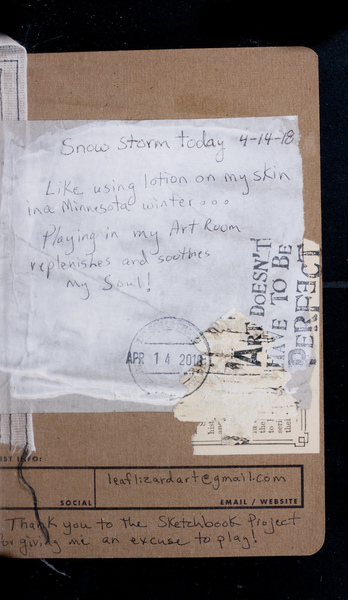 Snow storm today 4-14-18
Like using lotion on my skin
in a Minnesota winter...
Playing in my Art Room
replenishes and soothes
my Soul!
ART DOESN'T
HAVE TO BE
PERFECT
APR 14 2018
hist
and
in
the
to
seri
thei
IST INFO:
leaflizardart@gmail.com
SOCIAL
EMAIL / WEBSITE
Thank you to the Sketchbook Project
for giving me an excuse to play!